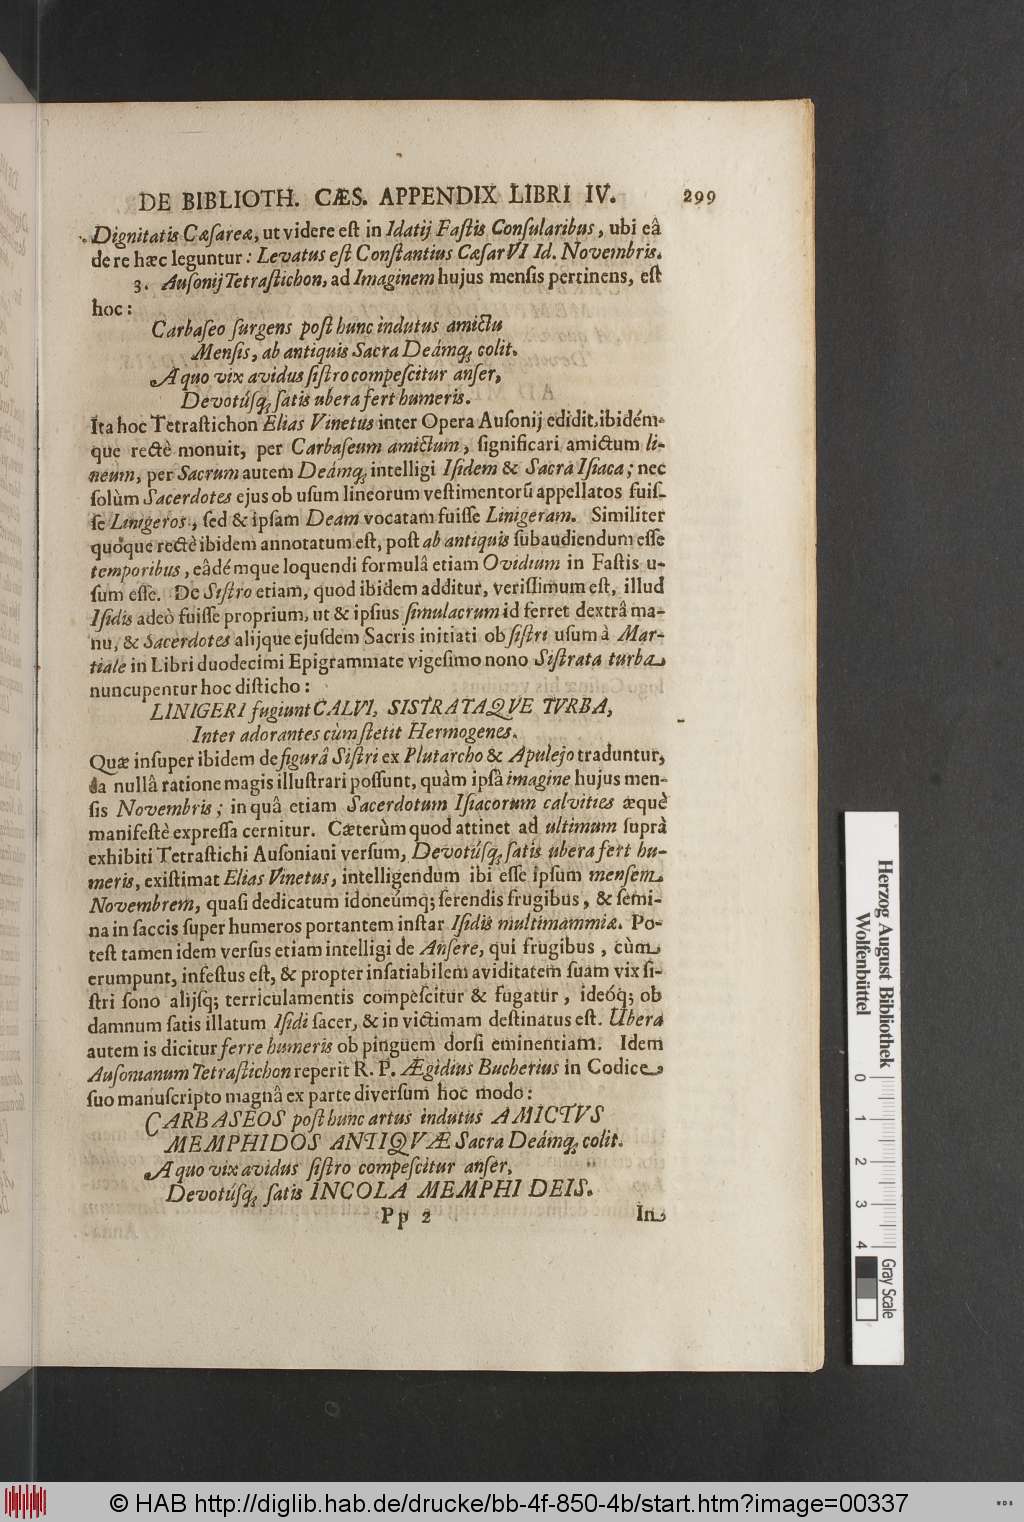 DE BIBLIOTH. CÆS. APPENDIX LIBRI IV. 299
Dignitatis Cæsareæ, ut videre eſt in Idatij Faſtis Conſularibus, ubi eâ
de re hæc leguntur: Levatus eſt Conſtantius Cæſar VI Id. Novembris.
3. Auſonij Tetraſtichon, ad Imaginem hujus menſis pertinens, eſt
hoc:
Carbaſeo ſurgens poſt hunc indutus amictu
Menſis, ab antiquis Sacra Deámq; colit.
A quo vix avidus ſiſtro compeſcitur anſer,
Devotúſq; ſatis ubera fert humeris.
Ita hoc Tetraſtichon Elias Vinetus inter Opera Auſonij edidit, ibidém-
que rectè monuit, per Carbaſeum amictum, ſignificari amictum li-
neum, per Sacrum autem Deámq; intelligi Iſidem & Sacra Iſiaca; nec
ſolùm Sacerdotes ejus ob uſum lineorum veſtimentorũ appellatos fuiſ-
ſe Linigeros, ſed & ipſam Deam vocatam fuiſſe Linigeram. Similiter
quoque rectè ibidem annotatum eſt, poſt ab antiquis ſubaudiendum eſſe
temporibus, eâdémque loquendi formulâ etiam Ovidium in Faſtis u-
ſum eſſe. De Siſtro etiam, quod ibidem additur, veriſſimum eſt, illud
Iſidis adeò fuiſſe proprium, ut & ipſius ſimulacrum id ferret dextrâ ma-
nu, & Sacerdotes alijque ejuſdem Sacris initiati ob ſiſtri uſum à Mar-
tiale in Libri duodecimi Epigrammate vigeſimo nono Siſtrata turba
nuncupentur hoc diſticho:
LINIGERI fugiunt CALVI, SISTRATAQVE TVRBA,
Inter adorantes cùm ſtetit Hermogenes.
Quæ inſuper ibidem de figurâ Siſtri ex Plutarcho & Apulejo traduntur,
ea nullâ ratione magis illuſtrari poſſunt, quàm ipſâ imagine hujus men-
ſis Novembris; in quâ etiam Sacerdotum Iſiacorum calvities æquè
manifeſtè expreſſa cernitur. Cæterùm quod attinet ad ultimum ſuprà
exhibiti Tetraſtichi Auſoniani verſum, Devotúſq; ſatis ubera fert hu-
meris, exiſtimat Elias Vinetus, intelligendum ibi eſſe ipſum menſem
Novembrem, quaſi dedicatum idoneúmq; ferendis frugibus, & ſemi-
na in ſaccis ſuper humeros portantem inſtar Iſidis multimammiæ. Po-
teſt tamen idem verſus etiam intelligi de Anſere, qui frugibus, cùm
erumpunt, infeſtus eſt, & propter inſatiabilem aviditatem ſuam vix ſi-
ſtri ſono alijſq; terriculamentis compeſcitur & fugatur, ideóq; ob
damnum ſatis illatum Iſidi ſacer, & in victimam deſtinatus eſt. Ubera
autem is dicitur ferre humeris ob pinguem dorſi eminentiam. Idem
Auſonianum Tetraſtichon reperit R. P. Ægidius Bucherius in Codice
ſuo manuſcripto magnâ ex parte diverſum hoc modo:
CARBASEOS poſt hunc artus indutus AMICTVS
MEMPHIDOS ANTIQVÆ Sacra Deámq; colit.
A quo vix avidus ſiſtro compeſcitur anſer,
Devotúſq; ſatis INCOLA MEMPHI DEIS.
Pp 2 In
Herzog August Bibliothek
Wolfenbüttel
0 1 2 3 4
Gray Scale
© HAB http://diglib.hab.de/drucke/bb-4f-850-4b/start.htm?image=00337